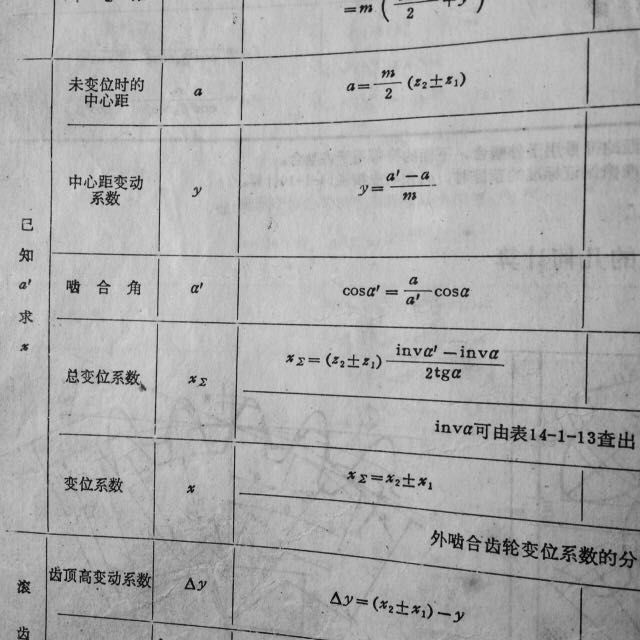 =m(
2
未变位时的
中心距
a
a=m/2(z₂±z₁)
中心距变动
系数
y
y=a′-a/m
已
知
a′
求
x
啮合角
α′
cosα′=a/a′cosα
总变位系数
x_Σ
x_Σ=(z₂±z₁)invα′-invα/2tgα
invα可由表14-1-13查出
变位系数
x
x_Σ=x₂±x₁
外啮合齿轮变位系数的分
滚
齿
齿顶高变动系数
Δy
Δy=(x₂±x₁)-y